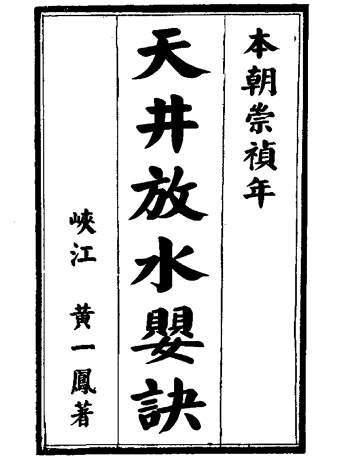 本朝崇禎年
天井放水嬰訣
峽江 黃一鳳著